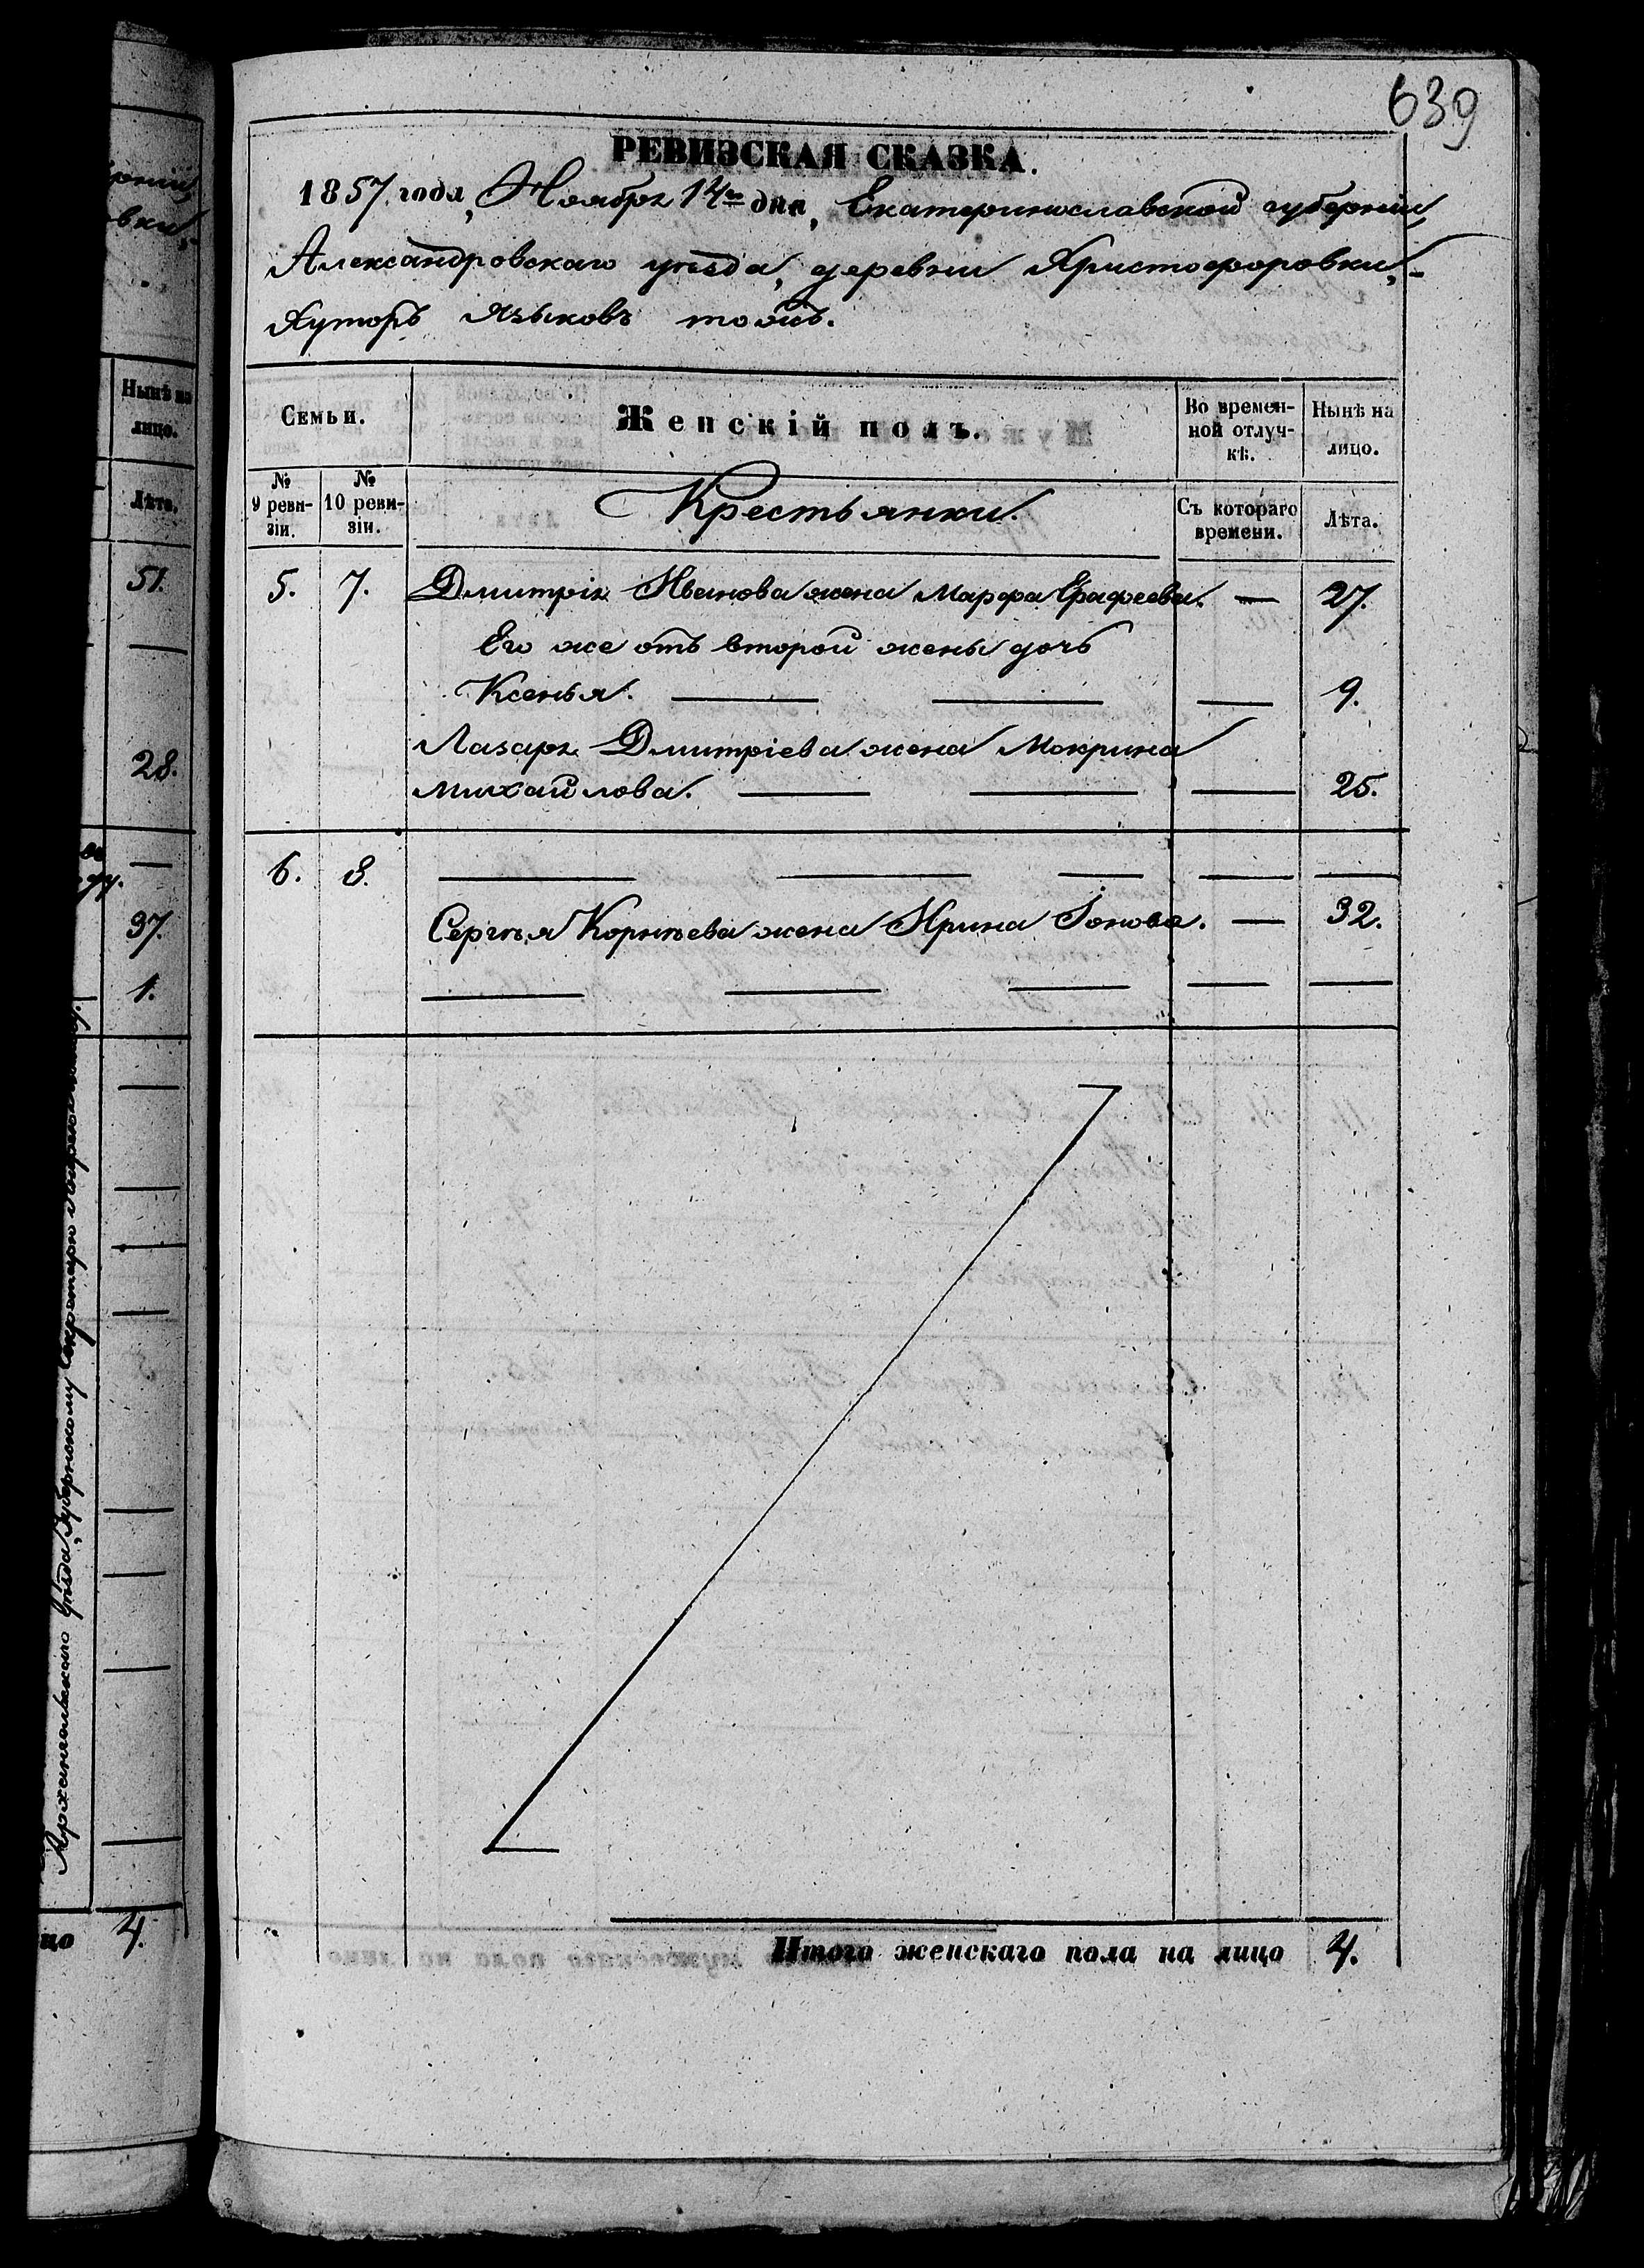 639
РЕВИЗСКАЯ СКАЗКА.
1857 года, Ноября 14го дня, Екатеринославской губерніи,
Александровскаго уѣзда, деревни Христофоровки,-
Хуторъ Языковъ тожъ.
Семьи.
Женскій полъ.
Во времен-
ной отлуч-
кѣ.
Нынѣ на
лицо.
№
9 реви-
зіи.
№
10 реви-
зіи.
Крестьянки.
Съ котораго
времени.
Лѣта.
5. 7. Дмитрія Иванова жена Марфа Ерафеева. — 27.
Его же отъ второй жены дочь
Ксенья. — — — 9.
Лазаря Дмитріева жена Мокрина
Михайлова. — — — 25.
6. 8. — — — — —
Сергѣя Корнѣева жена Ирина Іонова. — 32.
— — — — —
Итого женскаго пола на лицо 4.
Нынѣ на
лицо.
Лѣта.
51.
—
28.
—
37.
1.
Архангельскаго Уѣзда, Губернскому Секретарю
цо 4.